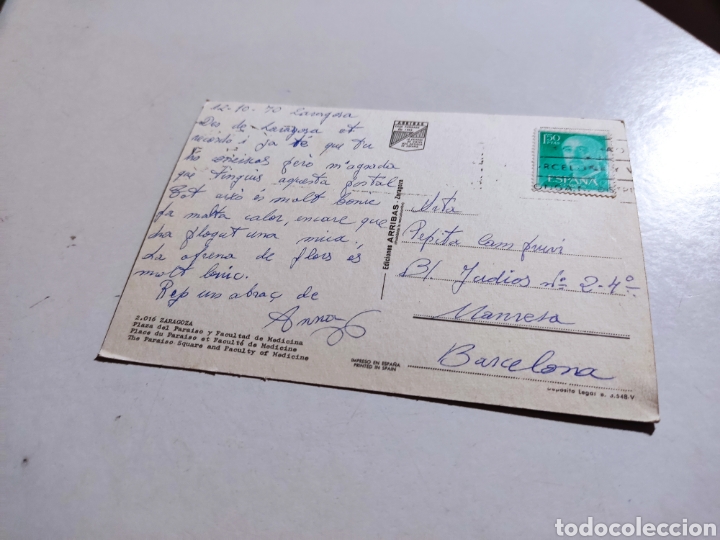 12-10-70 Zaragoza
Des de Zaragoza et
escric i ja sé que tu
ho coneixes però m'agrada
que tinguis aquesta postal
Tot això és molt bonic
fa molta calor, encare que
ha plogut una mica,
La ofrena de flors és
molt bonic.
Rep un abraç de
Anna
2.016 ZARAGOZA
Plaza del Paraiso y Facultad de Medicina
Place du Paraiso et Faculté de Medicine
The Paraiso Square and Faculty of Medicine
ARRIBAS
Ediciones ARRIBAS - Zaragoza
IMPRESO EN ESPAÑA
PRINTED IN SPAIN
1,50
PTAS
ESPAÑA
Pepita Camprubí
B/ Judios nº 2-4º
Manresa
Barcelona
Deposito Legal B. 4.548-V
todocoleccion